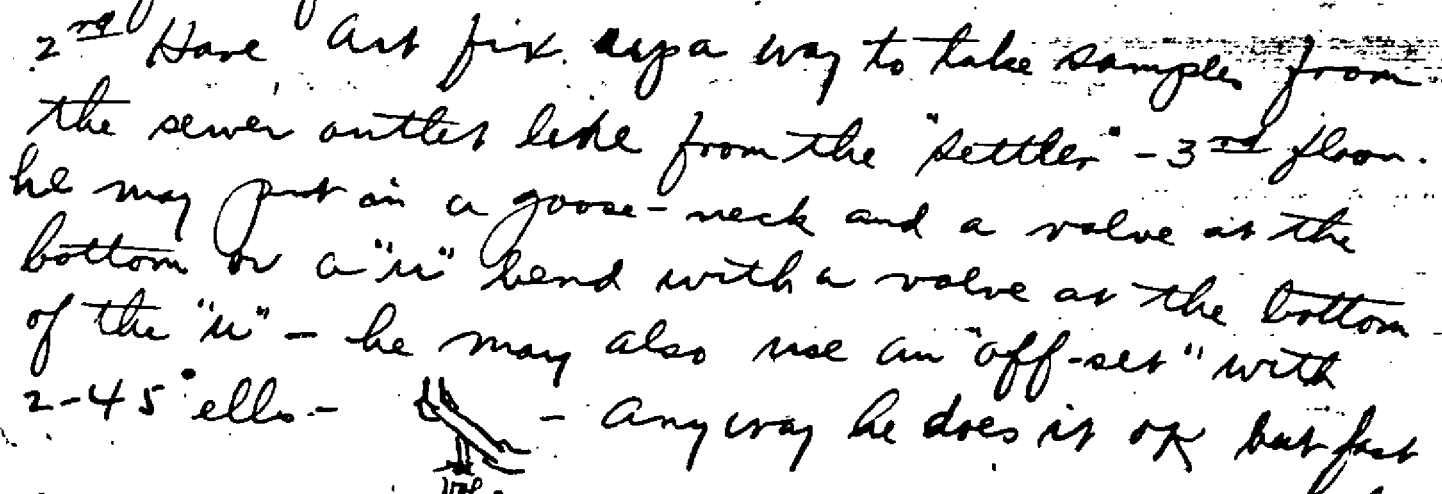 2nd Have Art fix up a way to take samples from
the sewer outlet like from the "settler" - 3rd floor.
he may put in a goose-neck and a valve at the
bottom or a "u" bend with a valve at the bottom
of the "u" - he may also use an "off-set" with
2-45° ells - - anyway he does it OK but fast
Val